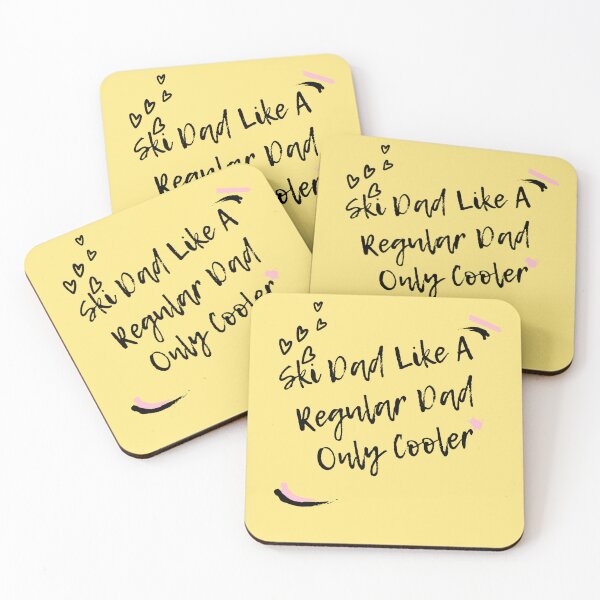 Ski Dad Like A
Regular Dad
Cooler
Ski Dad Like A
Regular Dad
Only Cooler
Ski Dad Like A
Regular Dad
Only Cooler
Ski Dad Like A
Regular Dad
Only Cooler